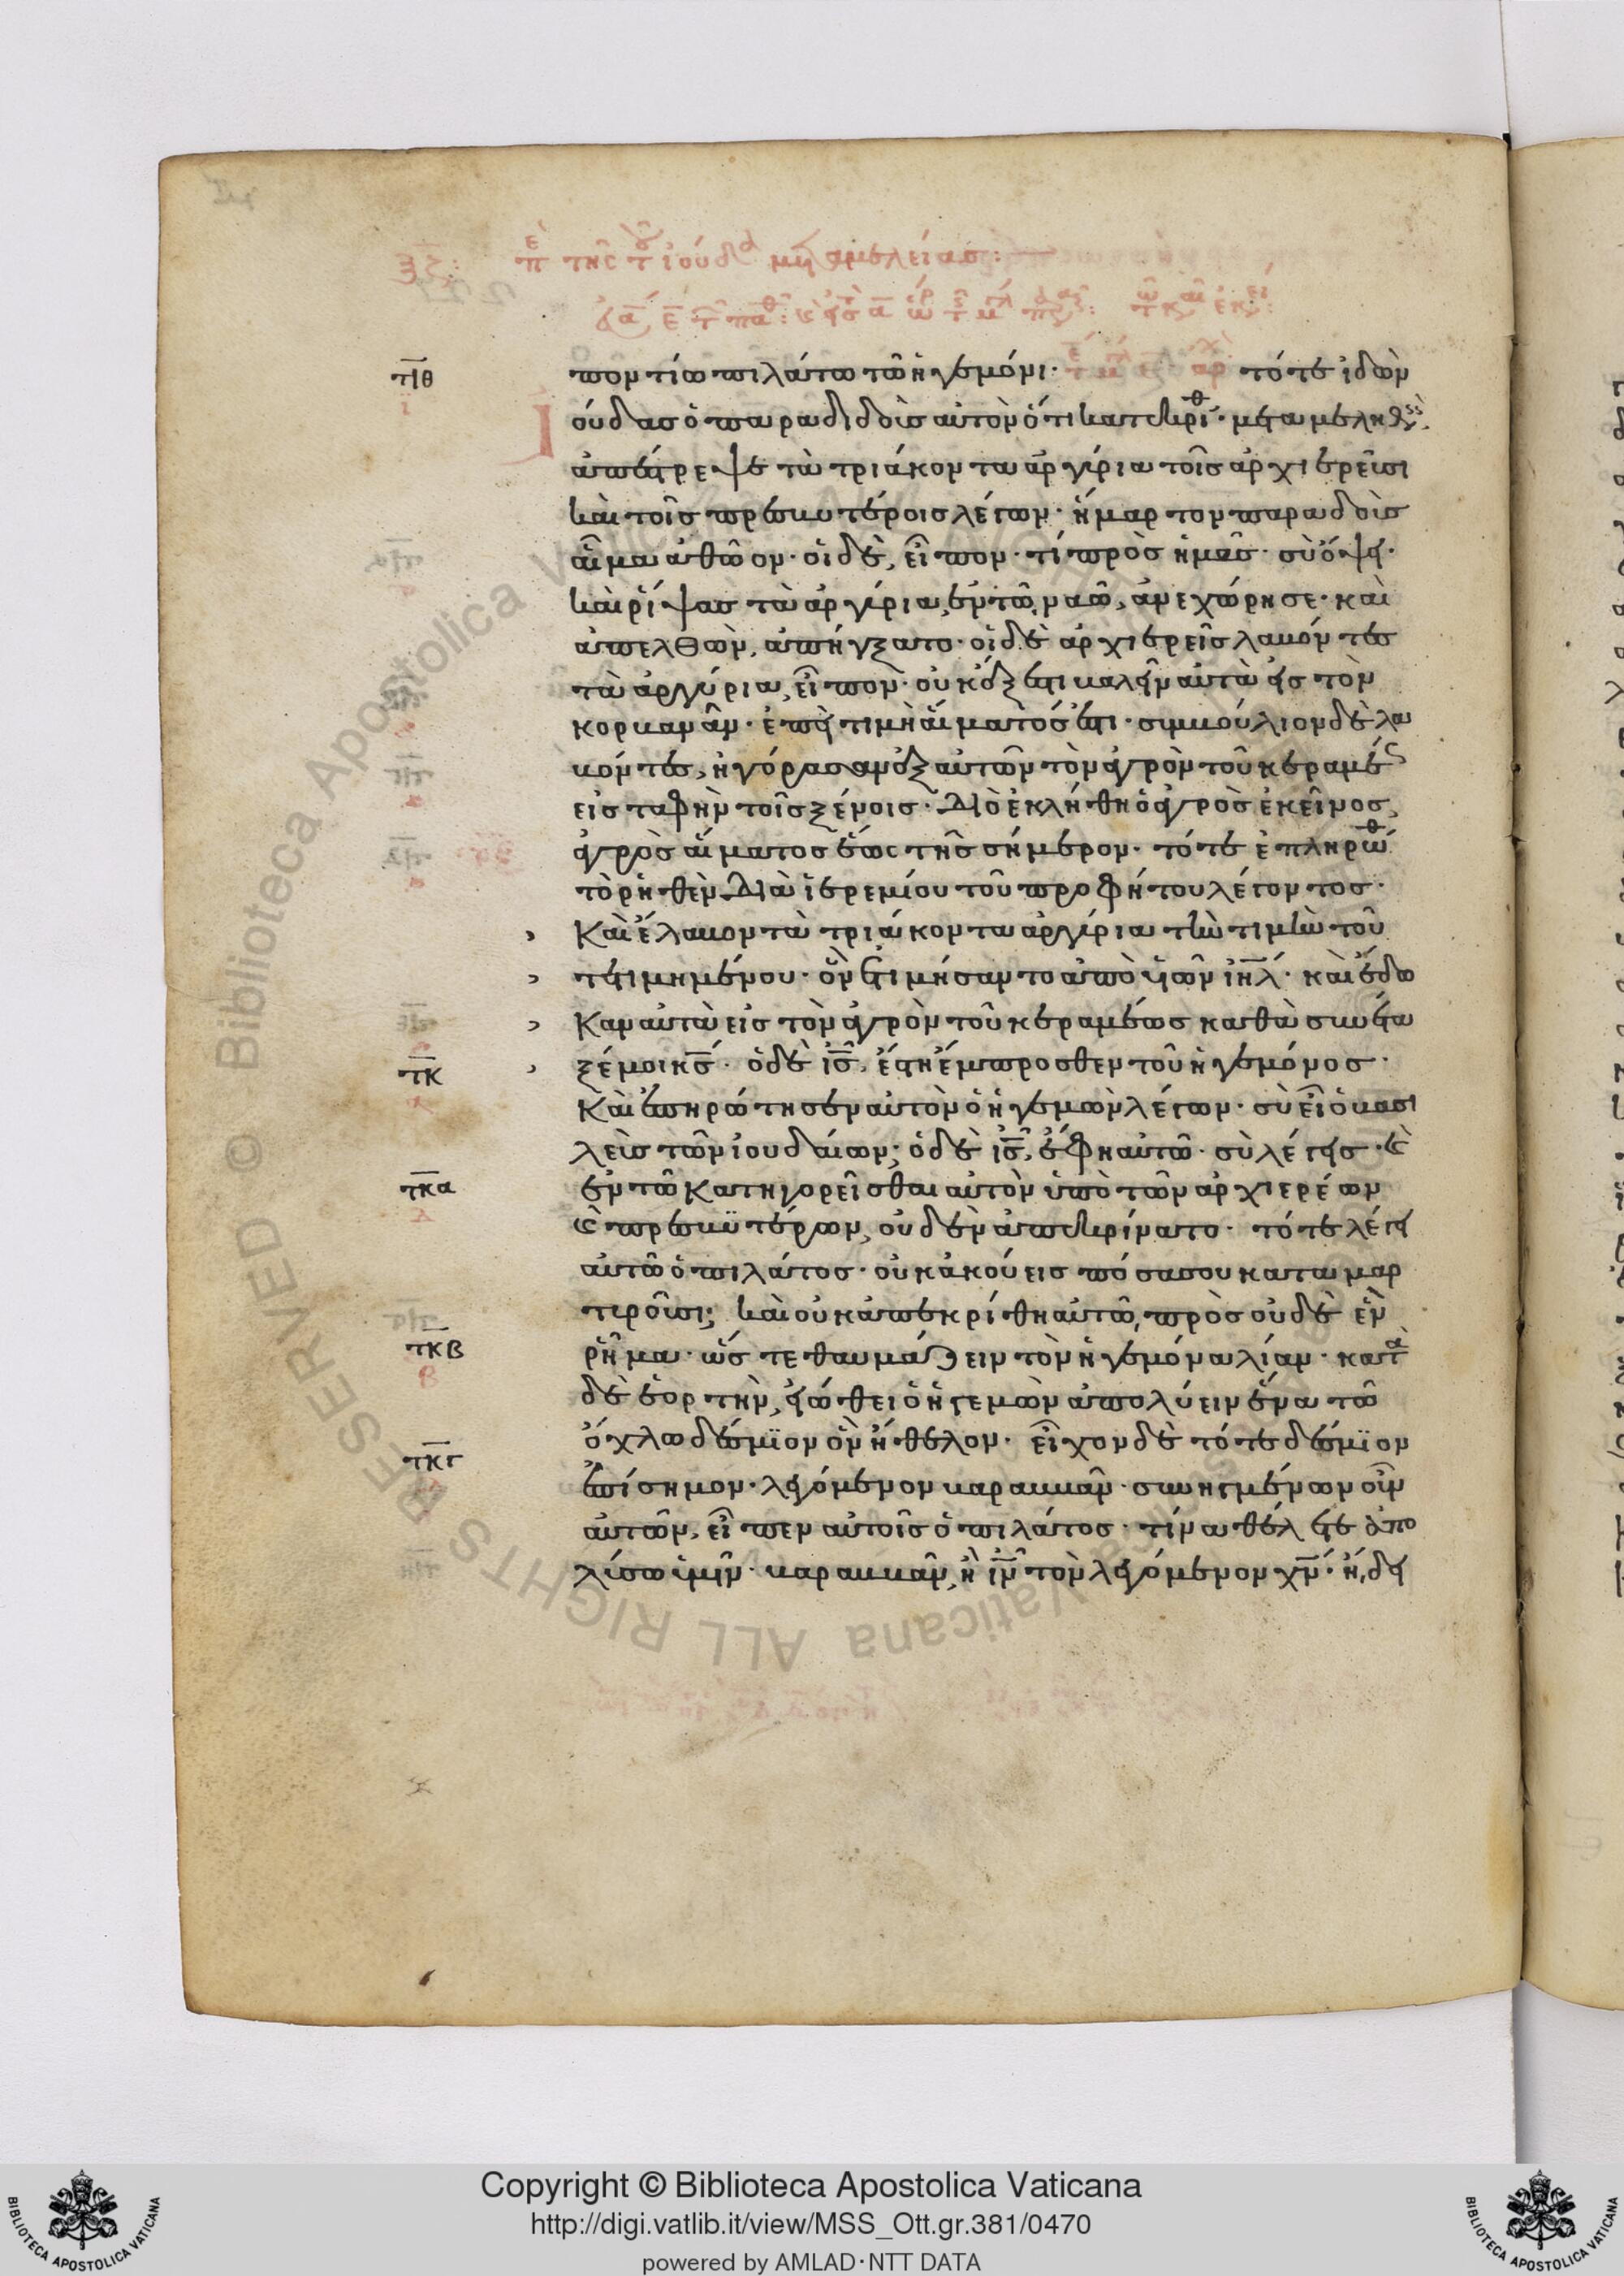 ξζ: π̅ε̅ τῆς τοῦ ἰούδα μεταμελείας:
ποντίω πιλάτω τῶ ἡγεμόνι· τότε ἰδὼν
τιθ
Ιούδας ὁ παραδιδοὺς αὐτὸν ὅτι κατεκρίθ· μεταμεληθεὶς
ἀπέστρεψε τὰ τριάκοντα ἀργύρια τοῖς ἀρχιερεῦσι
καὶ τοῖς πρεσβυτέροις λέγων· ἥμαρτον παραδοὺς
αἷμα ἀθῶον· οἱ δὲ, εἶπον· τί πρὸς ἡμᾶς· σὺ ὄψει·
καὶ ῥίψας τὰ ἀργύρια, ἐν τῶ ναῶ, ἀνεχώρησε· καὶ
ἀπελθὼν, ἀπήγξατο· οἱ δὲ ἀρχιερεῖς λαβόντες
τὰ ἀργύρια, εἶπον· οὐκ ἔξεστι βαλεῖν αὐτὰ εἰς τὸν
κορβανᾶν· ἐπεὶ τιμὴ αἵματός ἐστι· συμβούλιον δὲ λα
βόντες, ἠγόρασαν ἐξ αὐτῶν τὸν ἀγρὸν τοῦ κεραμέως
εἰς ταφὴν τοῖς ξένοις· Διὸ ἐκλήθη ὁ ἀγρὸς ἐκεῖνος,
ἀγρὸς αἵματος ἕως τῆς σήμερον· τότε ἐπληρώθ
τὸ ῥηθὲν Διὰ ἱερεμίου τοῦ προφήτου λέγοντος·
Καὶ ἔλαβον τὰ τριάκοντα ἀργύρια τὴν τιμὴν τοῦ
τετιμημένου· ὃν ἐτιμήσαντο ἀπὸ υἱῶν ἰη̅λ· καὶ ἔδω
Καν αὐτὰ εἰς τὸν ἀγρὸν τοῦ κεραμέως καθὰ συνέτα
ξέ μοι κ̅ς· ὁ δὲ ἰ̅ς, ἔστη ἔμπροσθεν τοῦ ἡγεμόνος·
τκ
Καὶ ἐπηρώτησεν αὐτὸν ὁ ἡγεμὼν λέγων· σὺ εἶ ὁ βασι
λεὺς τῶν ἰουδαίων; ὁ δὲ ἰ̅ς, ἔφη αὐτῶ· σὺ λέγεις· καὶ
τκα
ἐν τῶ Κατηγορεῖσθαι αὐτὸν ὑπὸ τῶν ἀρχιερέων
καὶ πρεσβϋτέρων, οὐδὲν ἀπεκρίνατο· τότε λέγει
αὐτῶ ὁ πιλάτος· οὐκ ἀκούεις πόσα σου καταμαρ
τυροῦσι; καὶ οὐκ ἀπεκρίθη αὐτῶ, πρὸς οὐδὲ ἓν
τκβ
ῥῆμα· ὥς τε θαυμάζειν τὸν ἡγεμόνα λίαν· κατὰ
δὲ ἑορτὴν, εἰώθει ὁ ἡγεμὼν ἀπολύειν ἕνα τῶ
ὄχλω δέσμϊον ὃν ἤθελον· εἶχον δὲ τότε δέσμϊον
τκγ
ἐπίσημον· λεγόμενον βαραββᾶν· συνηγμένων οὖν
αὐτῶν, εἶπεν αὐτοῖς ὁ πιλάτος· τίνα θέλετε ἀπο
λύσω ὑμῖν· βαραββᾶν, ἢ ἰ̅ν τὸν λεγόμενον χ̅ν· ἤδει
Copyright © Biblioteca Apostolica Vaticana
http://digi.vatlib.it/view/MSS_Ott.gr.381/0470
powered by AMLAD·NTT DATA